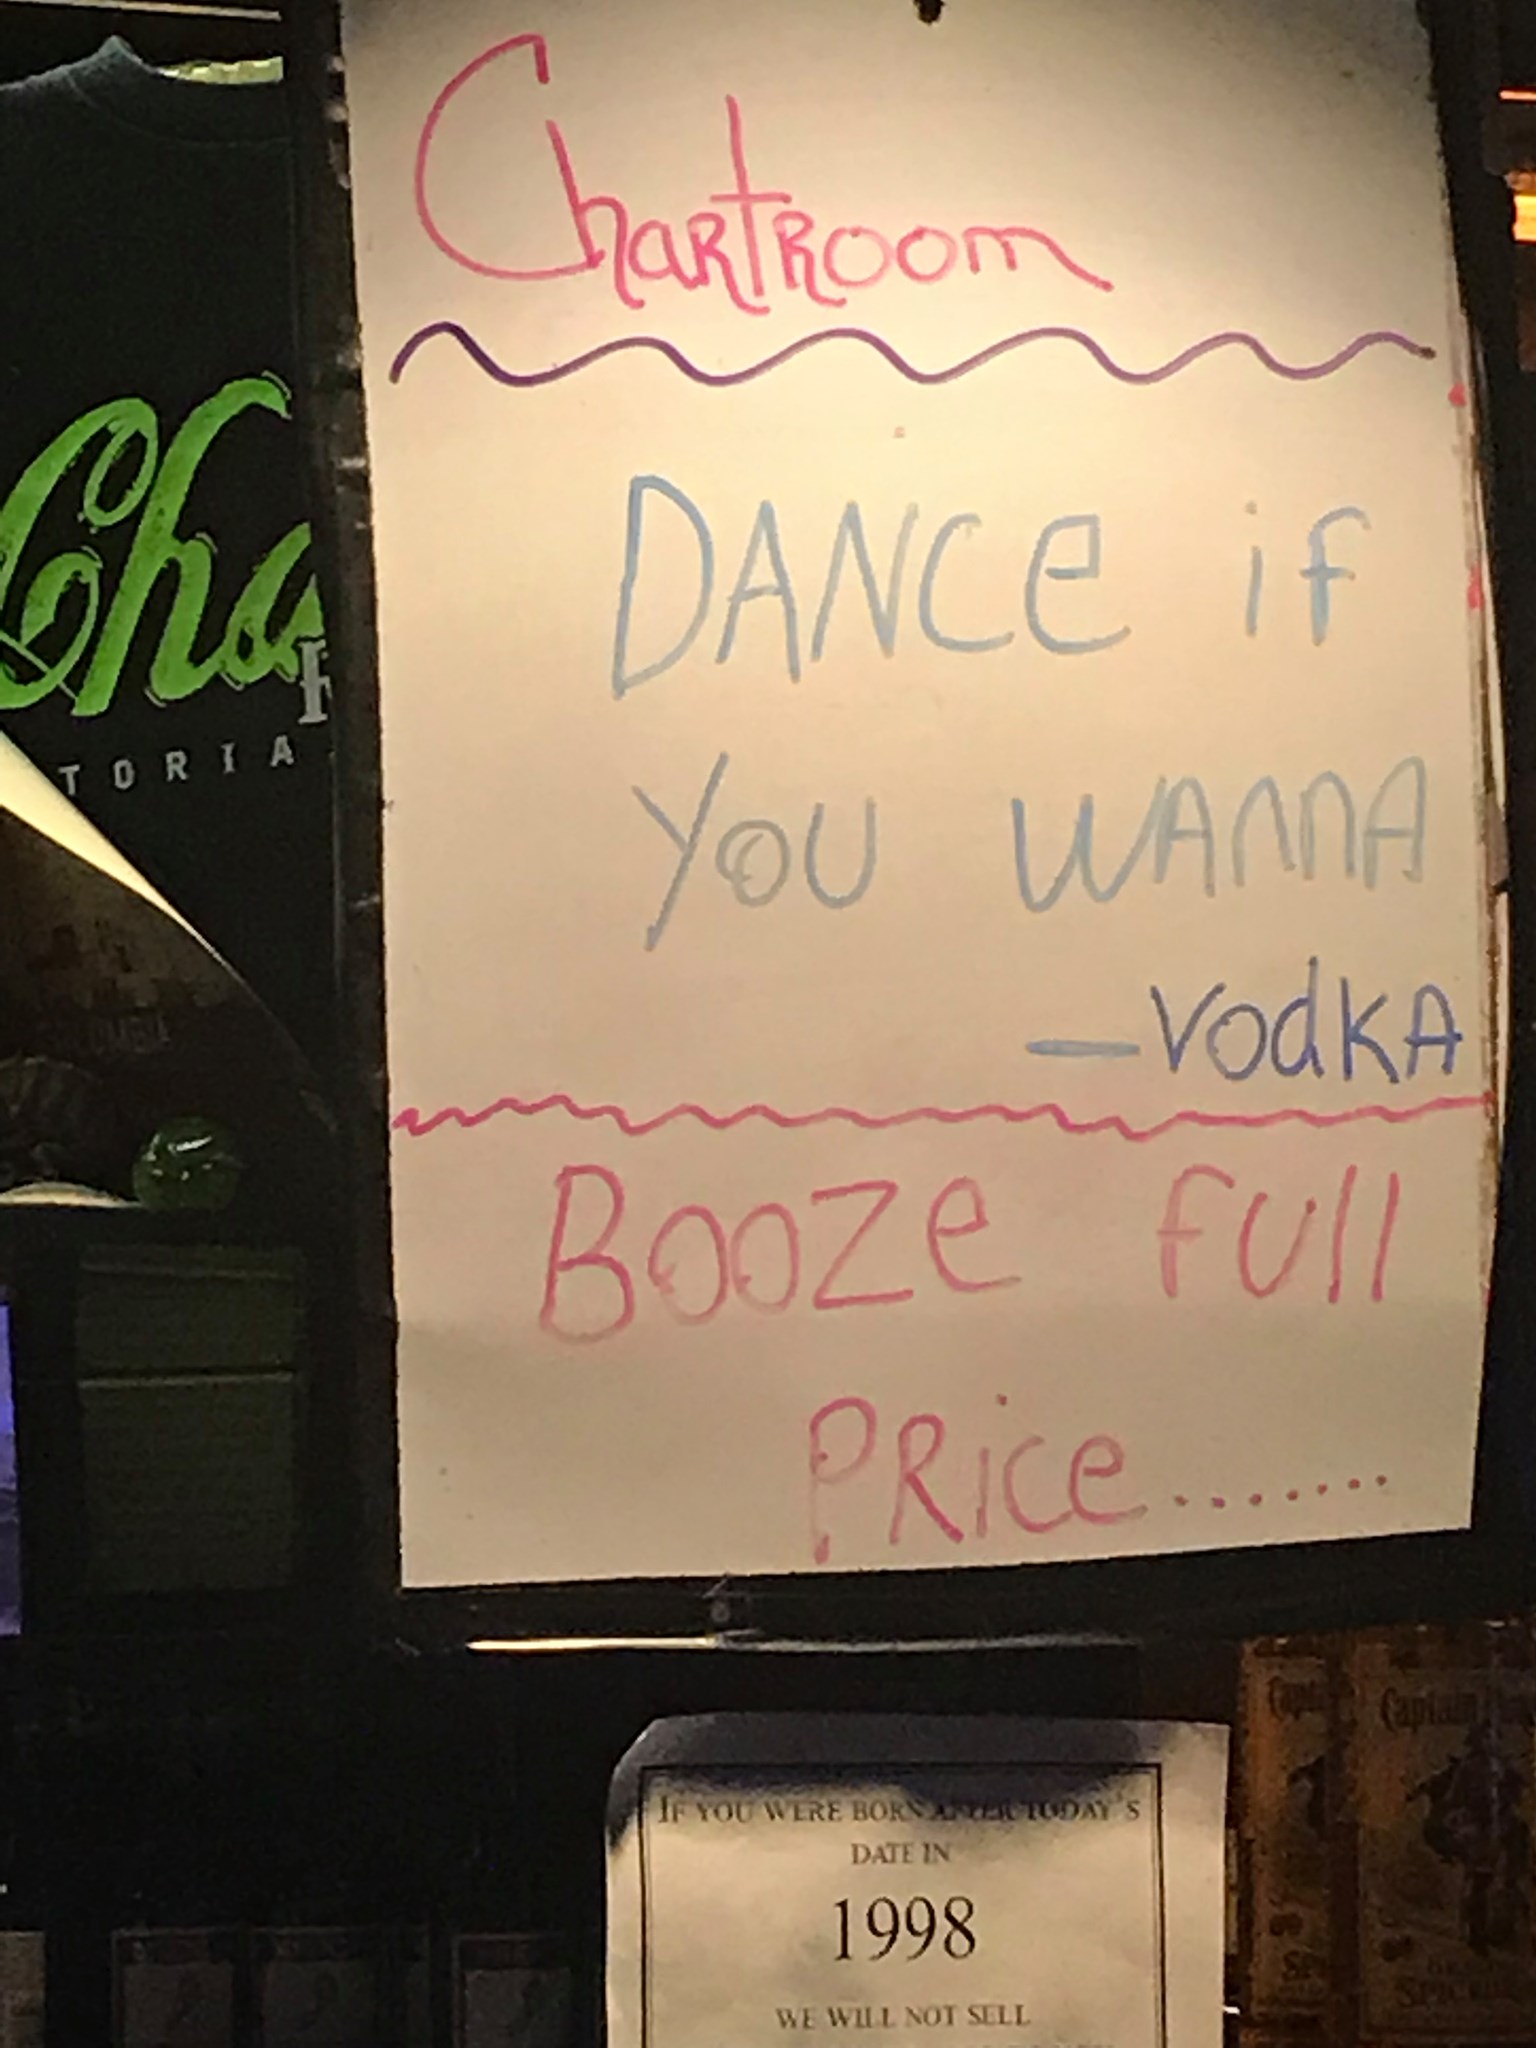 Chartroom
DANCE if
YOU WANNA
—VODKA
BOOZE FULL
PRICE.......
Cha
TORIA
IF YOU WERE BORN AFTER TODAY'S
DATE IN
1998
WE WILL NOT SELL
Captain